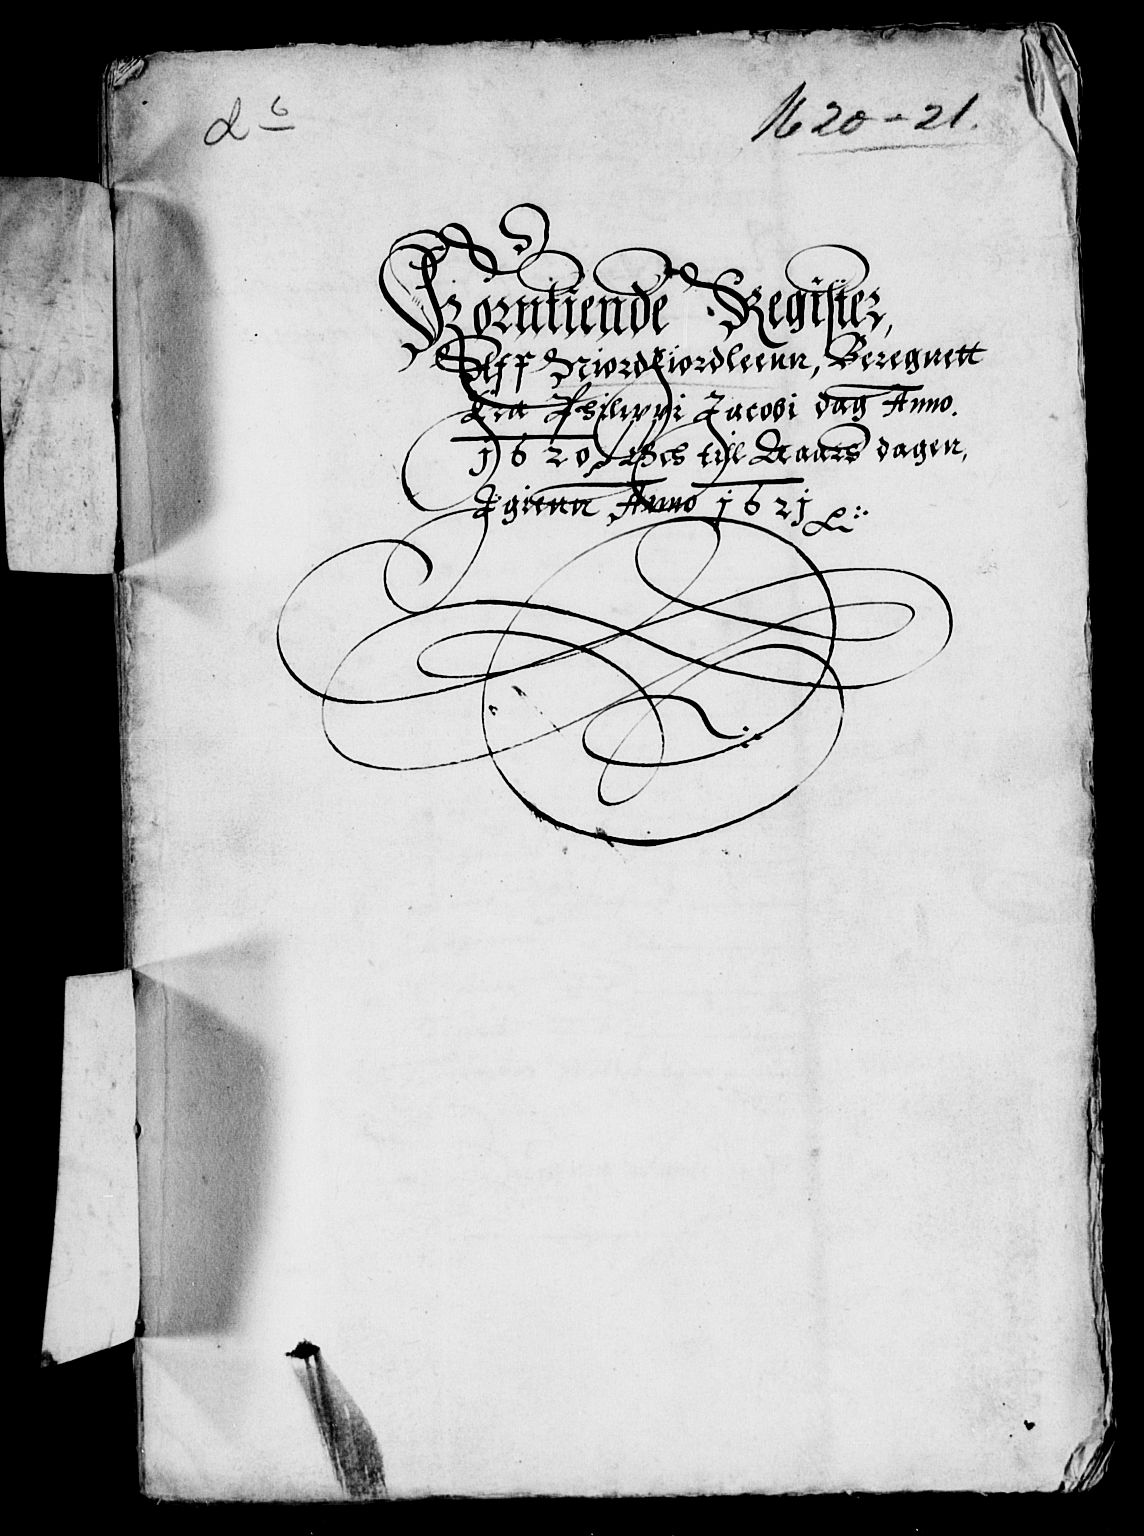 d 6
1620-21.
Korntiende Register,
Aff Niordfiordleenn, Beregnett
Fra Philippi Jacobi dag Anno.
1620, Och till Aaars dagen,
Igienn Anno 1621